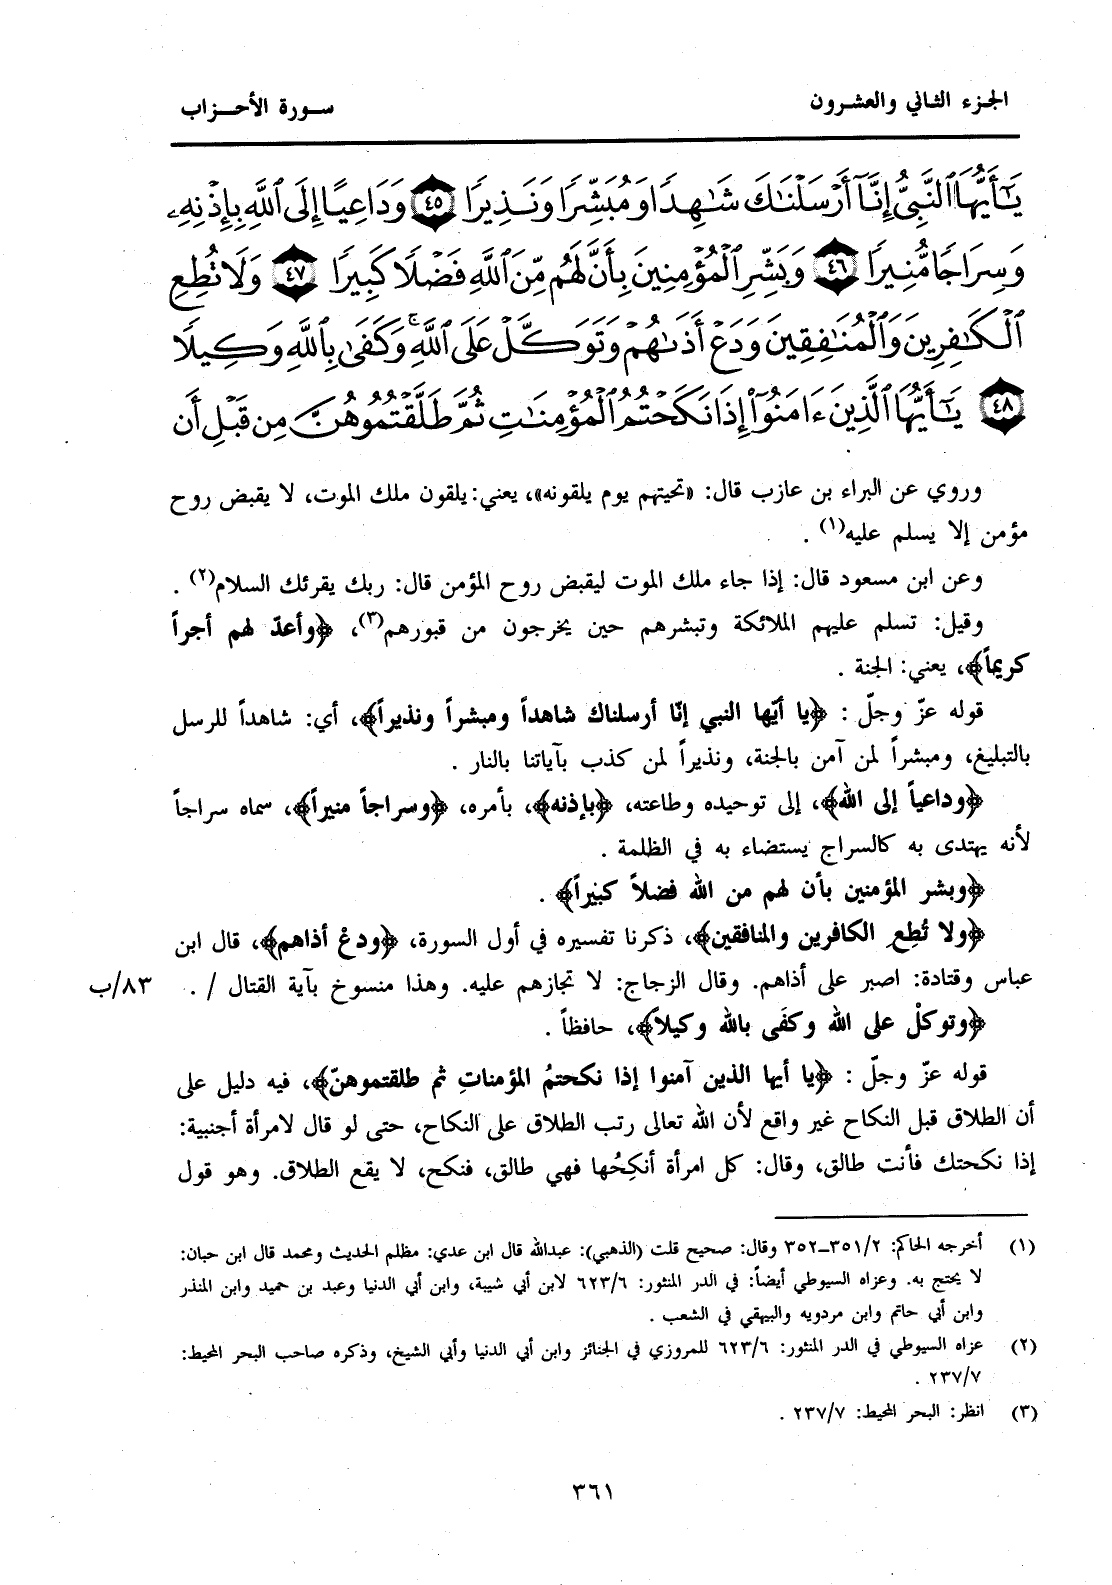 الجزء الثاني والعشرون
سورة الأحزاب
يَٰٓأَيُّهَا ٱلنَّبِىُّ إِنَّآ أَرْسَلْنَٰكَ شَٰهِدًا وَمُبَشِّرًا وَنَذِيرًا ٤٥ وَدَاعِيًا إِلَى ٱللَّهِ بِإِذْنِهِۦ
وَسِرَاجًا مُّنِيرًا ٤٦ وَبَشِّرِ ٱلْمُؤْمِنِينَ بِأَنَّ لَهُم مِّنَ ٱللَّهِ فَضْلًا كَبِيرًا ٤٧ وَلَا تُطِعِ
ٱلْكَٰفِرِينَ وَٱلْمُنَٰفِقِينَ وَدَعْ أَذَىٰهُمْ وَتَوَكَّلْ عَلَى ٱللَّهِ ۚ وَكَفَىٰ بِٱللَّهِ وَكِيلًا
٤٨ يَٰٓأَيُّهَا ٱلَّذِينَ ءَامَنُوٓا۟ إِذَا نَكَحْتُمُ ٱلْمُؤْمِنَٰتِ ثُمَّ طَلَّقْتُمُوهُنَّ مِن قَبْلِ أَن
وروي عن البراء بن عازب قال: «تحيتهم يوم يلقونه»، يعني: يلقون ملك الموت، لا يقبض روح
مؤمن إلا يسلم عليه(١) .
وعن ابن مسعود قال: إذا جاء ملك الموت ليقبض روح المؤمن قال: ربك يقرئك السلام(٢) .
وقيل: تسلم عليهم الملائكة وتبشرهم حين يخرجون من قبورهم(٣)، ﴿وأعدّ لهم أجراً
كريماً﴾، يعني: الجنة .
قوله عزّ وجلّ : ﴿يا أيّها النبي إنّا أرسلناك شاهداً ومبشراً ونذيراً﴾، أي: شاهداً للرسل
بالتبليغ، ومبشراً لمن آمن بالجنة، ونذيراً لمن كذب بآياتنا بالنار .
﴿وداعياً إلى الله﴾، إلى توحيده وطاعته، ﴿بإذنه﴾، بأمره، ﴿وسراجاً منيراً﴾، سماه سراجاً
لأنه يهتدى به كالسراج يستضاء به في الظلمة .
﴿وبشر المؤمنين بأن لهم من الله فضلاً كبيراً﴾ .
﴿ولا تُطِعِ الكافرين والمنافقين﴾، ذكرنا تفسيره في أول السورة، ﴿ودعْ أذاهم﴾، قال ابن
عباس وقتادة: اصبر على أذاهم. وقال الزجاج: لا تجازهم عليه. وهذا منسوخ بآية القتال / . ٨٣/ب
﴿وتوكلْ على الله وكفَى بالله وكيلاً﴾، حافظاً .
قوله عزّ وجلّ : ﴿يا أيها الذين آمنوا إذا نكحتمُ المؤمناتِ ثم طلقتموهنّ﴾، فيه دليل على
أن الطلاق قبل النكاح غير واقع لأن الله تعالى رتب الطلاق على النكاح، حتى لو قال لامرأة أجنبية:
إذا نكحتك فأنت طالق، وقال: كل امرأة أنكِحُها فهي طالق، فنكح، لا يقع الطلاق. وهو قول
(١) أخرجه الحاكم: ٣٥١/٢_٣٥٢ وقال: صحيح قلت (الذهبي): عبدالله قال ابن عدي: مظلم الحديث ومحمد قال ابن حبان:
لا يحتج به. وعزاه السيوطي أيضاً: في الدر المنثور: ٦٢٣/٦ لابن أبي شيبة، وابن أبي الدنيا وعبد بن حميد وابن المنذر
وابن أبي حاتم وابن مردويه والبيهقي في الشعب .
(٢) عزاه السيوطي في الدر المنثور: ٦٢٣/٦ للمروزي في الجنائز وابن أبي الدنيا وأبي الشيخ، وذكره صاحب البحر المحيط:
٢٣٧/٧ .
(٣) انظر: البحر المحيط: ٢٣٧/٧ .
٣٦١